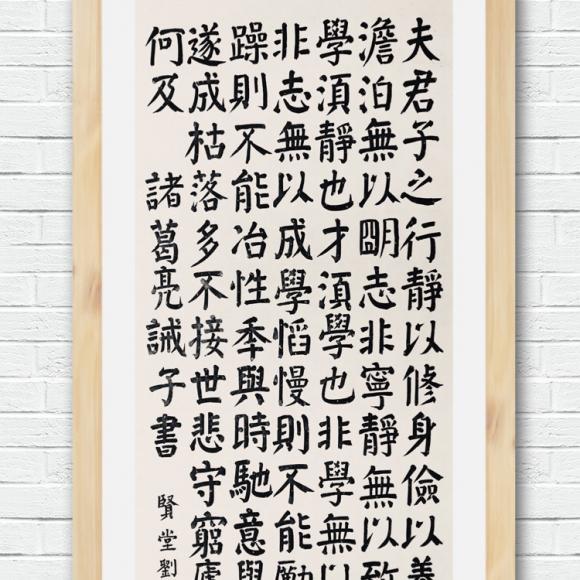 夫君子之行靜以修身儉以養
澹泊無以朙志非寧靜無以致
學湏靜也才湏學也非學無以
非志無以成學慆慢則不能勵
躁則不能冶性秊與時馳意與
遂成枯落多不接世悲守窮廬
何及 諸葛亮誡子書
賢堂劉